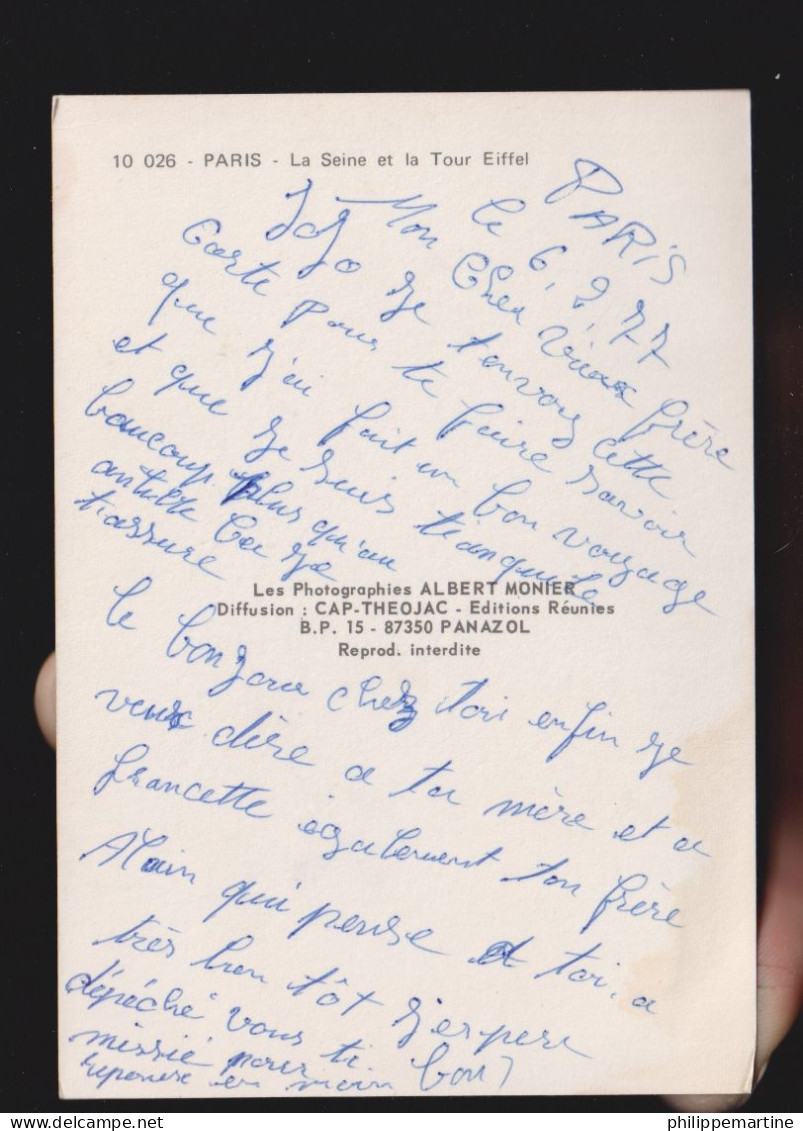 10 026 - PARIS - La Seine et la Tour Eiffel
PARIS
le 6.2.77
Mon Cher Vieux frère
JoJo je t'envois cette
Carte pour te faire savoir
que j'ai fait un bon voyage
et que je suis tranquille
beaucoup plus qu'au
antille je
t'assure
Les Photographies ALBERT MONIER
Diffusion : CAP-THEOJAC - Editions Réunies
B.P. 15 - 87350 PANAZOL
Reprod. interdite
le bonjour chez toi enfin je
veux dire a ta mère et a
francette également ton frère
Alain qui pense a toi. a
très bien tôt j'espere
dépéché vous ti bon
missié pour
reponse en main
philippemartine